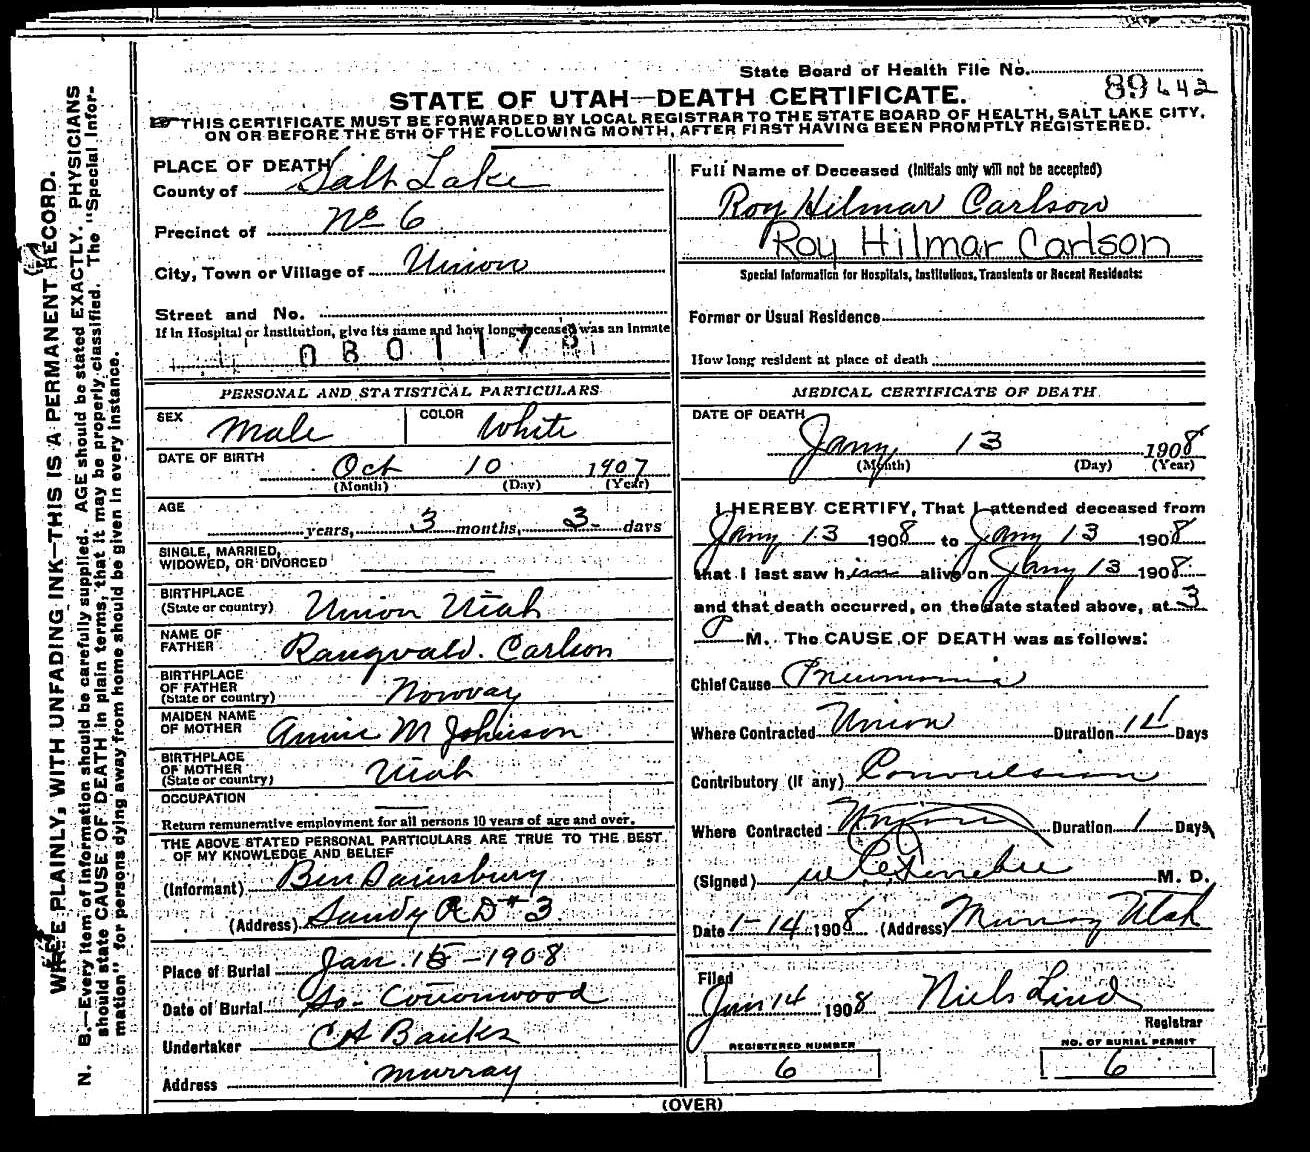 State Board of Health File No. 89642
STATE OF UTAH—DEATH CERTIFICATE.
THIS CERTIFICATE MUST BE FORWARDED BY LOCAL REGISTRAR TO THE STATE BOARD OF HEALTH, SALT LAKE CITY,
ON OR BEFORE THE 5TH OF THE FOLLOWING MONTH, AFTER FIRST HAVING BEEN PROMPTLY REGISTERED.
WRITE PLAINLY, WITH UNFADING INK—THIS IS A PERMANENT RECORD.
N. B.—Every item of information should be carefully supplied. AGE should be stated EXACTLY. PHYSICIANS
should state CAUSE OF DEATH in plain terms, that it may be properly classified. The "Special Infor-
mation" for persons dying away from home should be given in every instance.
PLACE OF DEATH
County of Salt Lake
Precinct of No 6
City, Town or Village of Union
Street and No.
If in Hospital or Institution, give its name and how long deceased was an inmate
0801178
PERSONAL AND STATISTICAL PARTICULARS
SEX Male COLOR White
DATE OF BIRTH Oct 10 1907
(Month) (Day) (Year)
AGE years, 3 months, 3 days
SINGLE, MARRIED,
WIDOWED, OR DIVORCED
BIRTHPLACE
(State or country) Union Utah
NAME OF
FATHER Rangvald. Carlson
BIRTHPLACE
OF FATHER
(State or country) Norway
MAIDEN NAME
OF MOTHER Annie M Johnson
BIRTHPLACE
OF MOTHER
(State or country) Utah
OCCUPATION
Return remunerative employment for all persons 10 years of age and over.
THE ABOVE STATED PERSONAL PARTICULARS ARE TRUE TO THE BEST
OF MY KNOWLEDGE AND BELIEF
(Informant) Ben Dainsbury
(Address) Sandy R D # 3
Place of Burial Jan. 15-1908
Date of Burial So- Cottonwood
Undertaker C A Banks
Address Murray
Full Name of Deceased (Initials only will not be accepted)
Roy Hilmar Carlson
Roy Hilmar Carlson
Special Information for Hospitals, Institutions, Transients or Recent Residents:
Former or Usual Residence
How long resident at place of death
MEDICAL CERTIFICATE OF DEATH
DATE OF DEATH
Jany 13 1908
(Month) (Day) (Year)
I HEREBY CERTIFY, That I attended deceased from
Jany 13 1908 to Jany 13 1908
that I last saw him alive on Jany 13 1908
and that death occurred, on the date stated above, at 3
P M. The CAUSE OF DEATH was as follows:
Chief Cause Pneumonia
Where Contracted Union Duration Days
Contributory (if any) Convulsion
Where Contracted Union Duration 1 Days
(Signed) M. D.
Date 1-14 1908 (Address) Murray Utah
Filed
Jan 14 1908 Niels Lind
Registrar
REGISTERED NUMBER
6
NO. OF BURIAL PERMIT
6
(OVER)